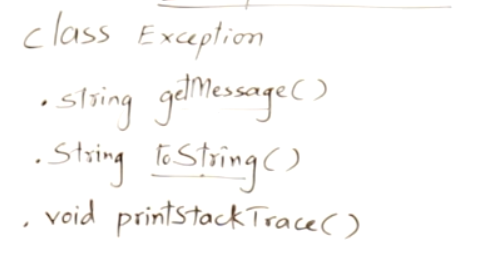 class Exception
. string getMessage()
. String toString()
. void printstackTrace()